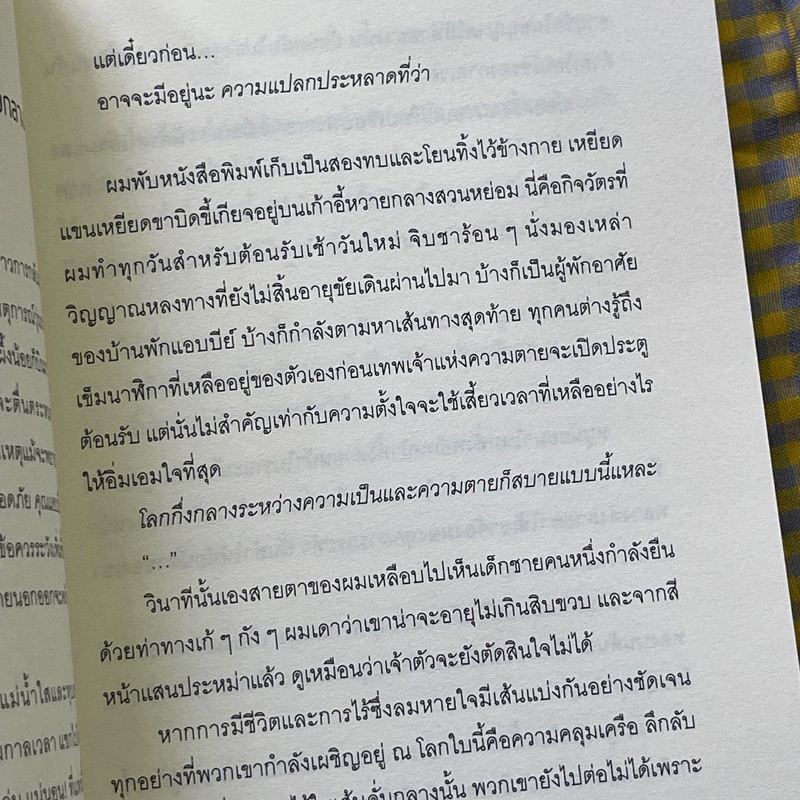 แต่เดี๋ยวก่อน...
อาจจะมีอยู่นะ ความแปลกประหลาดที่ว่า
ผมพับหนังสือพิมพ์เก็บเป็นสองทบและโยนทิ้งไว้ข้างกาย เหยียด
แขนเหยียดขาบิดขี้เกียจอยู่บนเก้าอี้หวายกลางสวนหย่อม นี่คือกิจวัตรที่
ผมทำทุกวันสำหรับต้อนรับเช้าวันใหม่ จิบชาร้อน ๆ นั่งมองเหล่า
วิญญาณหลงทางที่ยังไม่สิ้นอายุขัยเดินผ่านไปมา บ้างก็เป็นผู้พักอาศัย
ของบ้านพักแอบบีย์ บ้างก็กำลังตามหาเส้นทางสุดท้าย ทุกคนต่างรู้ถึง
เข็มนาฬิกาที่เหลืออยู่ของตัวเองก่อนเทพเจ้าแห่งความตายจะเปิดประตู
ต้อนรับ แต่นั่นไม่สำคัญเท่ากับความตั้งใจจะใช้เสี้ยวเวลาที่เหลืออย่างไร
ให้อิ่มเอมใจที่สุด
โลกกึ่งกลางระหว่างความเป็นและความตายก็สบายแบบนี้แหละ
“...”
วินาทีนั้นเองสายตาของผมเหลือบไปเห็นเด็กชายคนหนึ่งกำลังยืน
ด้วยท่าทางเก้ ๆ กัง ๆ ผมเดาว่าเขาน่าจะอายุไม่เกินสิบขวบ และจากสี
หน้าแสนประหม่าแล้ว ดูเหมือนว่าเจ้าตัวจะยังตัดสินใจไม่ได้
หากการมีชีวิตและการไร้ซึ่งลมหายใจมีเส้นแบ่งกันอย่างชัดเจน
ทุกอย่างที่พวกเขากำลังเผชิญอยู่ ณ โลกใบนี้คือความคลุมเครือ ลึกลับ
เส้นคั่นกลางนั้น พวกเขายังไปต่อไม่ได้เพราะ